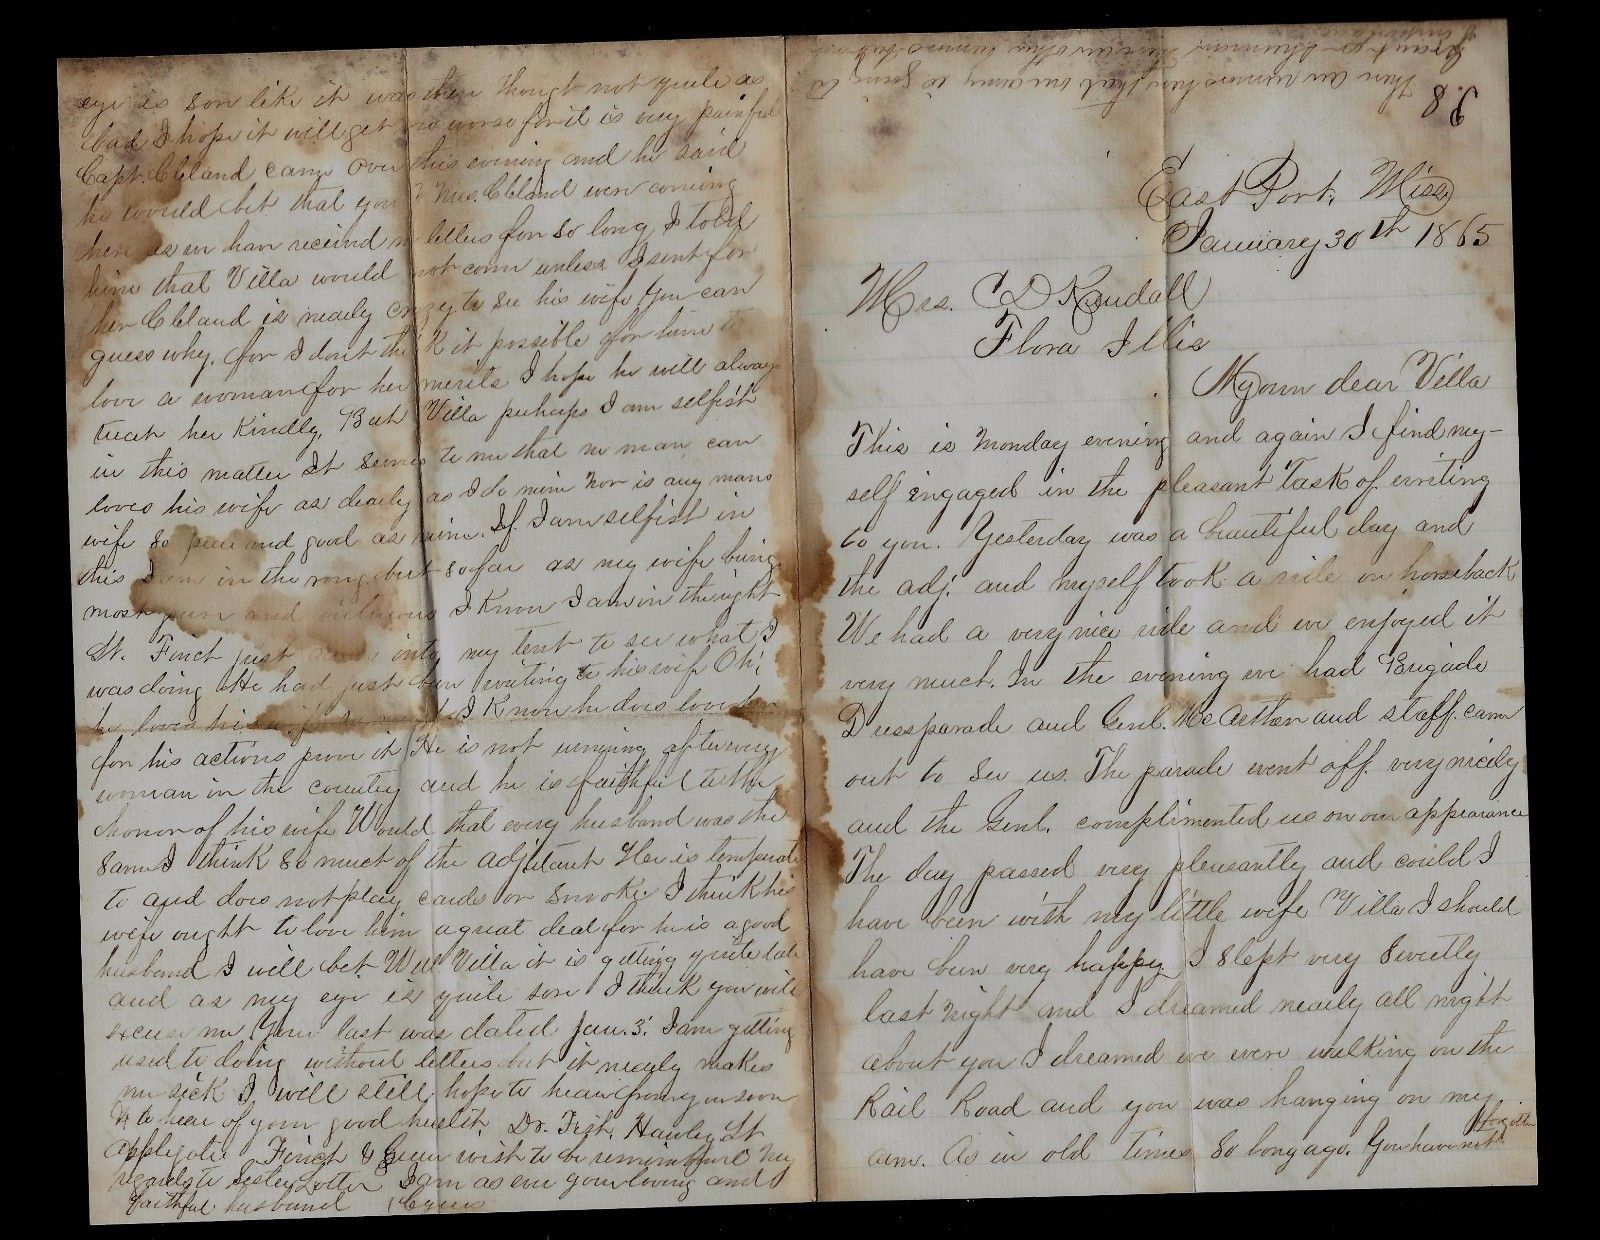 East Port, Miss
January 30th 1865
Mrs. C D Randall
Flora Ills
My own dear Villa
This is Monday evening and again I find my-
self engaged in the pleasant Task of writing
to you. Yesterday was a beautiful day and
the adj. and myself took a ride on horseback
We had a very nice ride and we enjoyed it
very much. In the evening we had Brigade
Dressparade and Genl. McArthur and staff came
out to see us The parade went off very nicely
and the Genl. complimented us on our appearance
The day passed very pleasantly and could I
have been with my little wife Villa I should
have been very happy I slept very sweetly
last night and I dreamed nearly all night
about you I dreamed we were walking on the
Rail Road and you was hanging on my
arm. As in old times so long ago. You have not forgotten
eye is sore like it was then though not quite as
bad I hope it will get no worse for it is very painful
Capt. Cleland came over this evening and he said
he would bet that you & Mrs. Cleland were coming
here as we have received no letters for so long, I told
him that Villa would not come unless I sent for
her Cleland is nearly crazy to see his wife You can
guess why, for I dont think it possible for him to
love a woman for her merits I hope he will always
treat her kindly. But Villa perhaps I am selfish
in this matter It seems to me that no man can
loves his wife as dearly as I do mine Nor is any mans
wife so pure and good as mine. If I am selfish in
this I am in the rong but so far as my wife being
most pure and virtuous I know I am in the right
Lt. Finch just came into my tent to see what I
was doing He had just been writing to his wife Oh!
he loves his wife I know he does love her
for his actions prove it He is not running after every
woman in the country and he is faithful to the
honor of his wife Would that every husband was the
same I think so much of the adjutant He is temperate
to and does not play cards or smoke I think his
wife ought to love him a great deal for he is a good
husband I will bet. Well Villa it is getting quite late
and as my eye is quite sore I think you will
excuse me Your last was dated Jan. 3. I am getting
used to doing without letters but it nearly makes
me sick I will still hope to hear from you soon
& to hear of your good health. Dr. Fish, Hawley Lt
Applegate Finch & Greer wish to be remembered My
regards to Sister Lottie I am as ever your loving and
faithful husband Cyrus
P.S.
There are rumors here that our army is going to